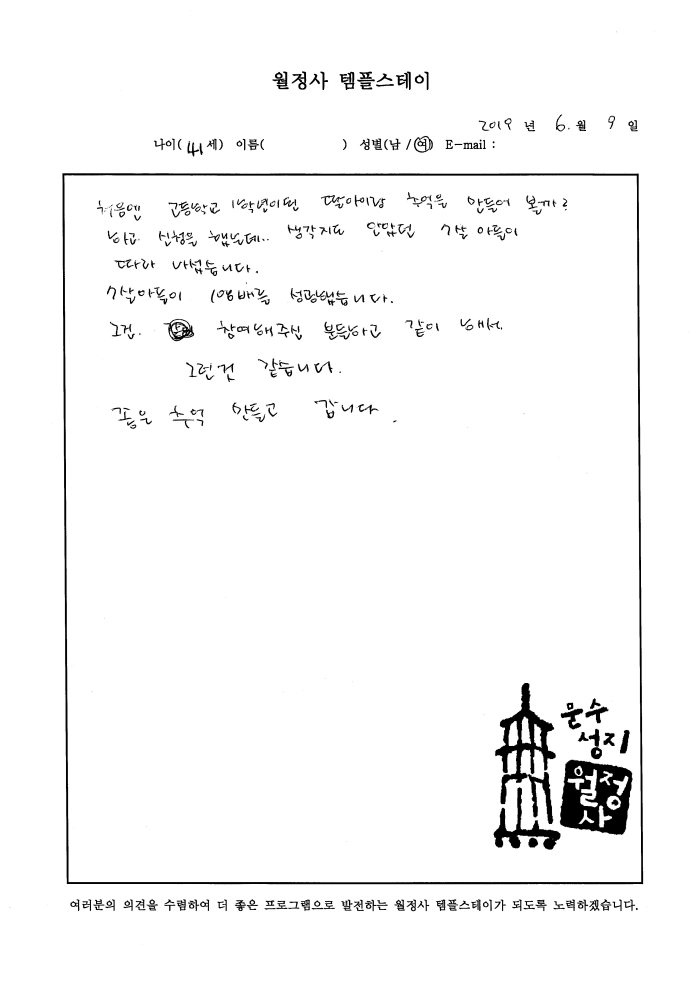 월정사 템플스테이
2019 년 6. 월 9 일
나이( 41 세) 이름( ) 성별(남 / 여) E-mail :
처음엔 고등학교 1학년이된 딸아이랑 추억을 만들어 볼까?
하고 신청을 했는데.. 생각지도 안았던 7살 아들이
따라 나섭습니다.
7살아들이 108배를 성공했습니다.
그건. 참여해주신 분들하고 같이 해서.
그런건 같습니다.
좋은 추억 만들고 갑니다.
문수
성지
월정
사
여러분의 의견을 수렴하여 더 좋은 프로그램으로 발전하는 월정사 템플스테이가 되도록 노력하겠습니다.